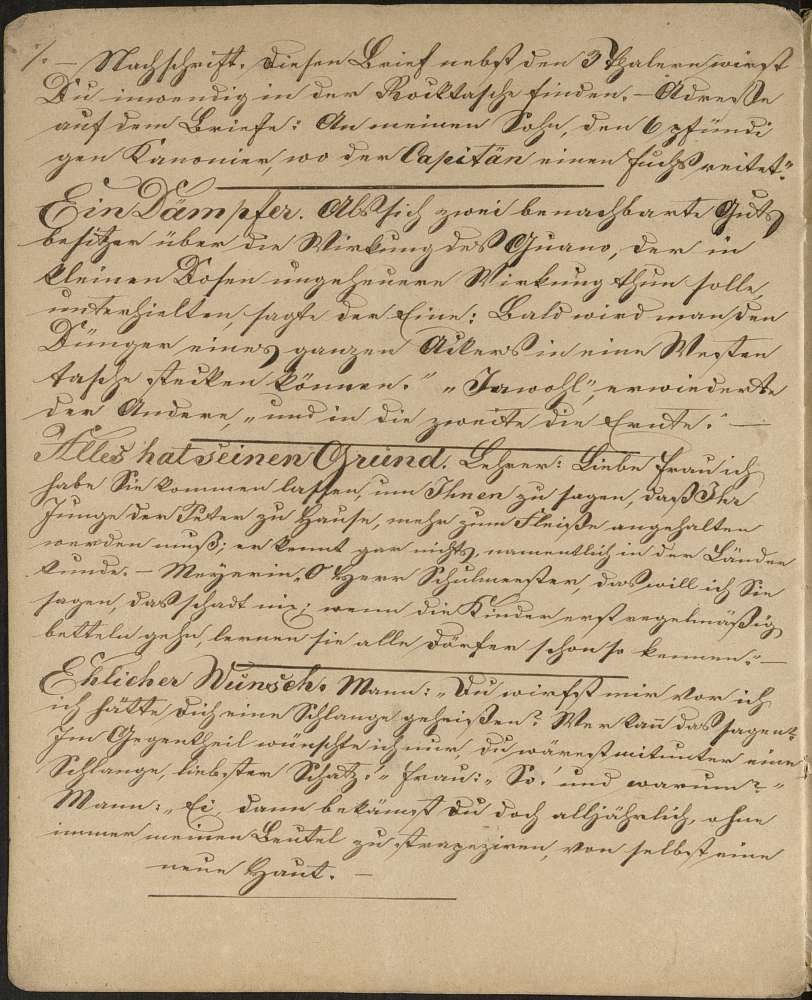 ·/. — Nachschrift. Diesen Brief nebst den 3 Thalern wirst
Du inwendig in der Rocktasche finden. — Adresse
auf dem Briefe: An meinen Sohn, den 6 pfündi
gen Kanonier, wo der Capitän einen Fuchs reitet."
Ein Dämpfer. Als sich zwei benachbarte Guts
besitzer über die Wirkung des Guano, der in
kleinen Dosen ungeheuere Wirkung thun solle,
unterhielten, sagte der Eine: Bald wird man den
Dünger eines ganzen Ackers in eine Westen
tasche stecken können." „Jawohl", erwiederte
der Andere, „und in die zweite die Ernte." —
Alles hat seinen Grund. Lehrer: Liebe Frau ich
habe Sie kommen lassen, um Ihnen zu sagen, daß Ihr
Junge der Peter zu Hause, mehr zum Fleiße angehalten
werden muß; er kennt gar nichts, namentlich in der Länder
kunde. — Meyerin „O Herr Schulmeester, das will ich Sie
sagen, das schadt nix; wenn die Kinder erst regelmäßig
betteln gehn, lernen sie alle Dörfer schon so kennen." —
Ehlicher Wunsch. Mann: „Du wirfst mir vor ich
ich hätte Dich eine Schlange geheißen? Wer kann das sagen?
Im Gegentheil wünschte ich nur, Du wärest mitunter eine
Schlange, liebster Schatz." Frau: „So! und warum?"
Mann: „Ei, dann bekämst Du doch alljährlich, ohne
immer meinen Beutel zu strapeziren, von selbst eine
neue Haut. —